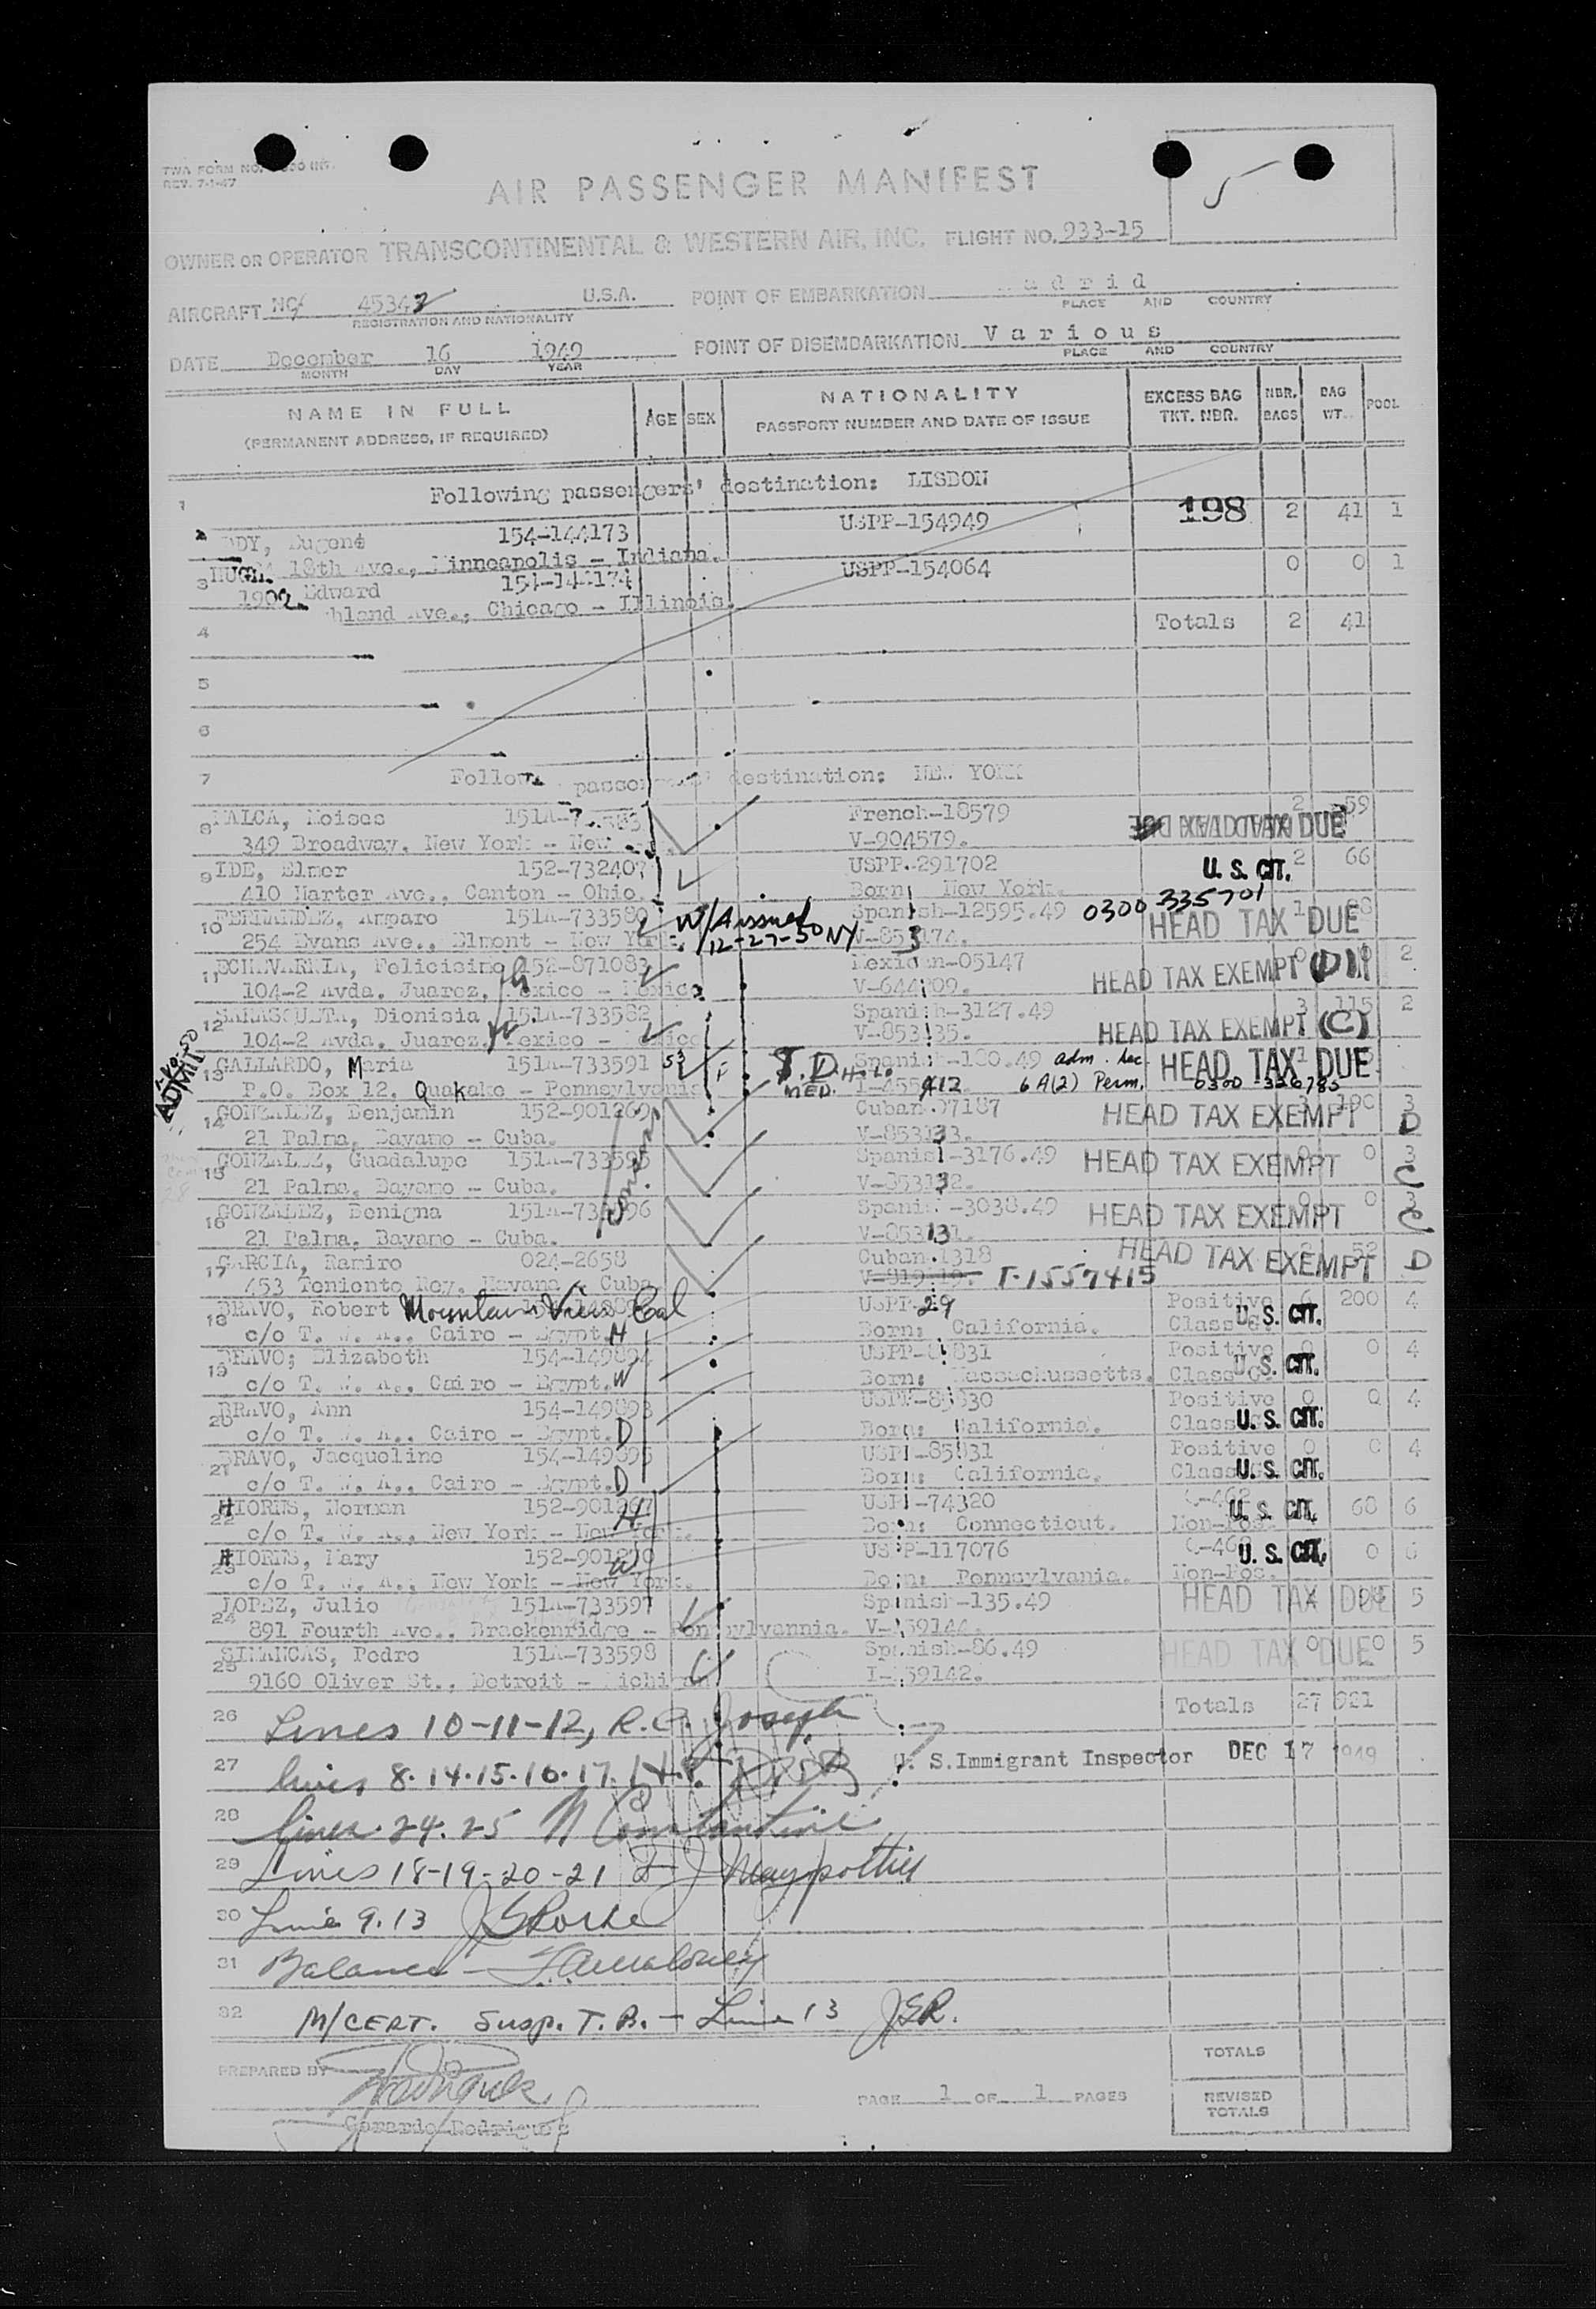 TWA FORM NO.
REV. 7-1-47
AIR PASSENGER MANIFEST
OWNER OR OPERATOR TRANSCONTINENTAL & WESTERN AIR, INC. FLIGHT NO. 933-15
AIRCRAFT NC 45342 U.S.A. POINT OF EMBARKATION
REGISTRATION AND NATIONALITY PLACE AND COUNTRY
DATE December 16 1949 POINT OF DISEMBARKATION Various
MONTH DAY YEAR PLACE AND COUNTRY
NAME IN FULL AGE SEX NATIONALITY EXCESS BAG NBR. BAG POOL
(PERMANENT ADDRESS, IF REQUIRED) PASSPORT NUMBER AND DATE OF ISSUE TKT. NBR. BAGS WT.
1 Following passengers' destination: LISBON
Eugene 154-144173 USPP-154949 198 2 41 1
18th Ave., Minneapolis - Indiana.
3 Edward 154-144174 USPP-154064 0 0 1
Ave., Chicago - Illinois.
4 Totals 2 41
5
6
7 destination: NEW YORK
8 Moises French-18579 2 59
349 Broadway, New York - New V-904579.
9 IDE, Elmer 152-732407 USPP-291702 U.S. CIT. 2 66
410 Harter Ave., Canton - Ohio. Born: New York.
10 FERNANDEZ, Amparo 151A-733580 Spanish-12595.49 0300 335701 HEAD TAX DUE
254 Evans Ave., Elmont - New York. 12-27-50 NY
11 ECHEVARRIA, Felicisimo 152-871083 Mexican-05147 HEAD TAX EXEMPT (D) 2
104-2 Avda. Juarez, Mexico - Mexico
12 SARASQUETA, Dionisia 151A-733582 Spanish-3127.49 HEAD TAX EXEMPT (C) 3 115 2
104-2 Avda. Juarez, Mexico - Mexico
ADMIT
13 GALLARDO, Maria 151A-733591 53 F T.D. Spanish-180.49 adm. sec HEAD TAX DUE
P.O. Box 12, Quakake - Pennsylvania MED. 6A(2) Perm. 0300-326785
14 GONZALEZ, Benjamin 152-901269 Cuban. HEAD TAX EXEMPT 3
21 Palma, Bayamo - Cuba. V-853133. D
15 GONZALEZ, Guadalupe 151A-733595 Spanish-3176.49 HEAD TAX EXEMPT 0 3
21 Palma, Bayamo - Cuba. V-853132. C
16 GONZALEZ, Benigna Spanish-3038.49 HEAD TAX EXEMPT 0 0 3
21 Palma, Bayamo - Cuba. V-853131. C
17 GARCIA, Ramiro 024-2658 Cuban.1318 HEAD TAX EXEMPT D
453 Teniente Rey, Havana - Cuba. T-1557415
18 BRAVO, Robert Mountain View Cal Positive 6 200 4
c/o T. W. A., Cairo - Egypt. H Born: California. Class U.S. CIT.
19 BRAVO, Elizabeth 154-149894 Positive 0 4
c/o T. W. A., Cairo - Egypt. W Born: Massachussetts. Class U.S. CIT.
20 BRAVO, Ann 154-149893 Positive 0 0 4
c/o T. W. A., Cairo - Egypt. D Born: California. Class U.S. CIT.
21 BRAVO, Jacqueline 154-149895 Positive 0 0 4
c/o T. W. A., Cairo - Egypt. D Born: California. Class U.S. CIT.
22 HIORNS, Norman USPP-74320 U.S. CIT. 68 6
c/o T. W. A., New York - New York. H Born: Connecticut. Non-Pos.
23 HIORNS, Mary USPP-117076 U.S. CIT. 0 6
c/o T. W. A., New York - New York. W Born: Pennsylvania. Non-Pos.
24 LOPEZ, Julio 151A-733597 Spanish-135.49 HEAD TAX DUE 5
891 Fourth Ave., Brackenridge - Pennsylvannia.
25 SIMANCAS, Pedro 151A-733598 Spanish-86.49 HEAD TAX DUE 0 0 5
9160 Oliver St., Detroit - Michigan
26 Lines 10-11-12, R. Joseph Totals 27 921
27 lines 8.14.15.16.17. U. S.Immigrant Inspector DEC 17 1949
28 Lines 24.25 N Constantine
29 Lines 18-19-20-21
30 Line 9.13
31 Balance -
32 M/CERT. Susp. T.B. - Line 13 JSR.
TOTALS
PREPARED BY
PAGE 1 OF 1 PAGES REVISED TOTALS
Gerardo Rodriguez